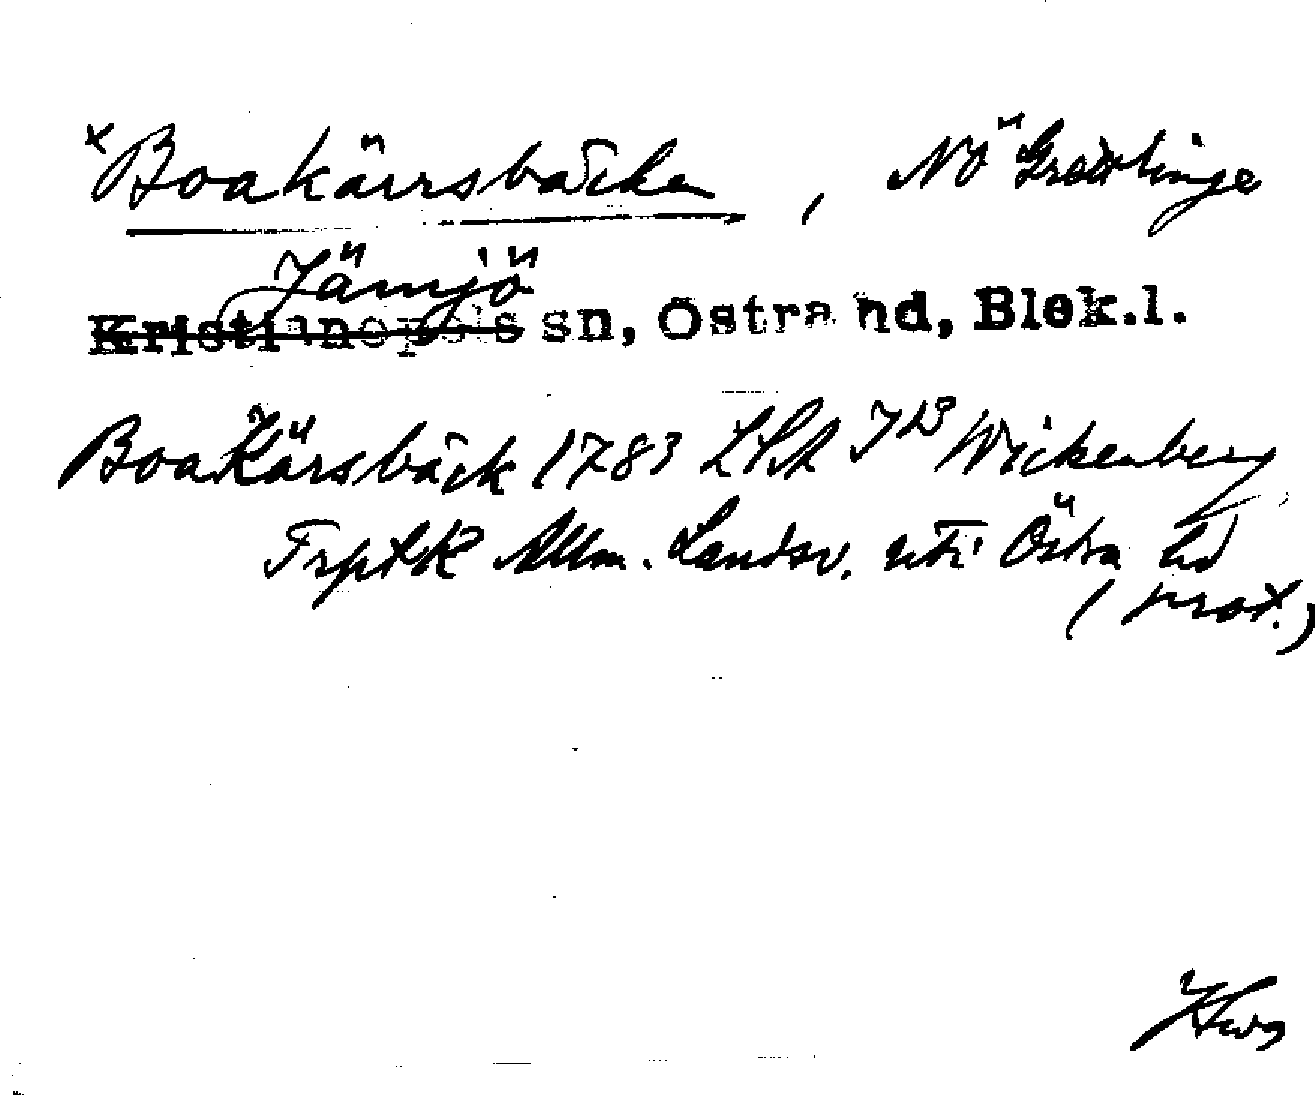 ˣBoakärrsbäcken, NÖ Grettlinge
Jämjö
Kristianopels sn, Östra hd, Blek.l.
Boa Kärsbäck 1783 LSA J 13 Wickenberg
Allm. Landsv. uti Östra hd
(prot.)